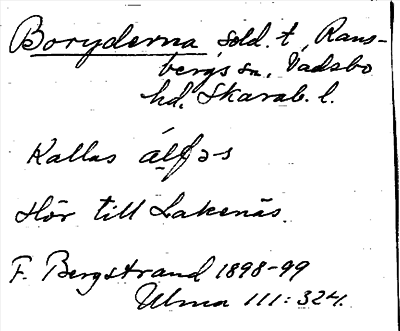 Boryderna, sold. t, Rans-
bergs sn, Vadsbo
hd, Skarab. l.
Kallas álfəs
Hör till Lakenäs.
F. Bergstrand 1898-99
Ulma 111:324.